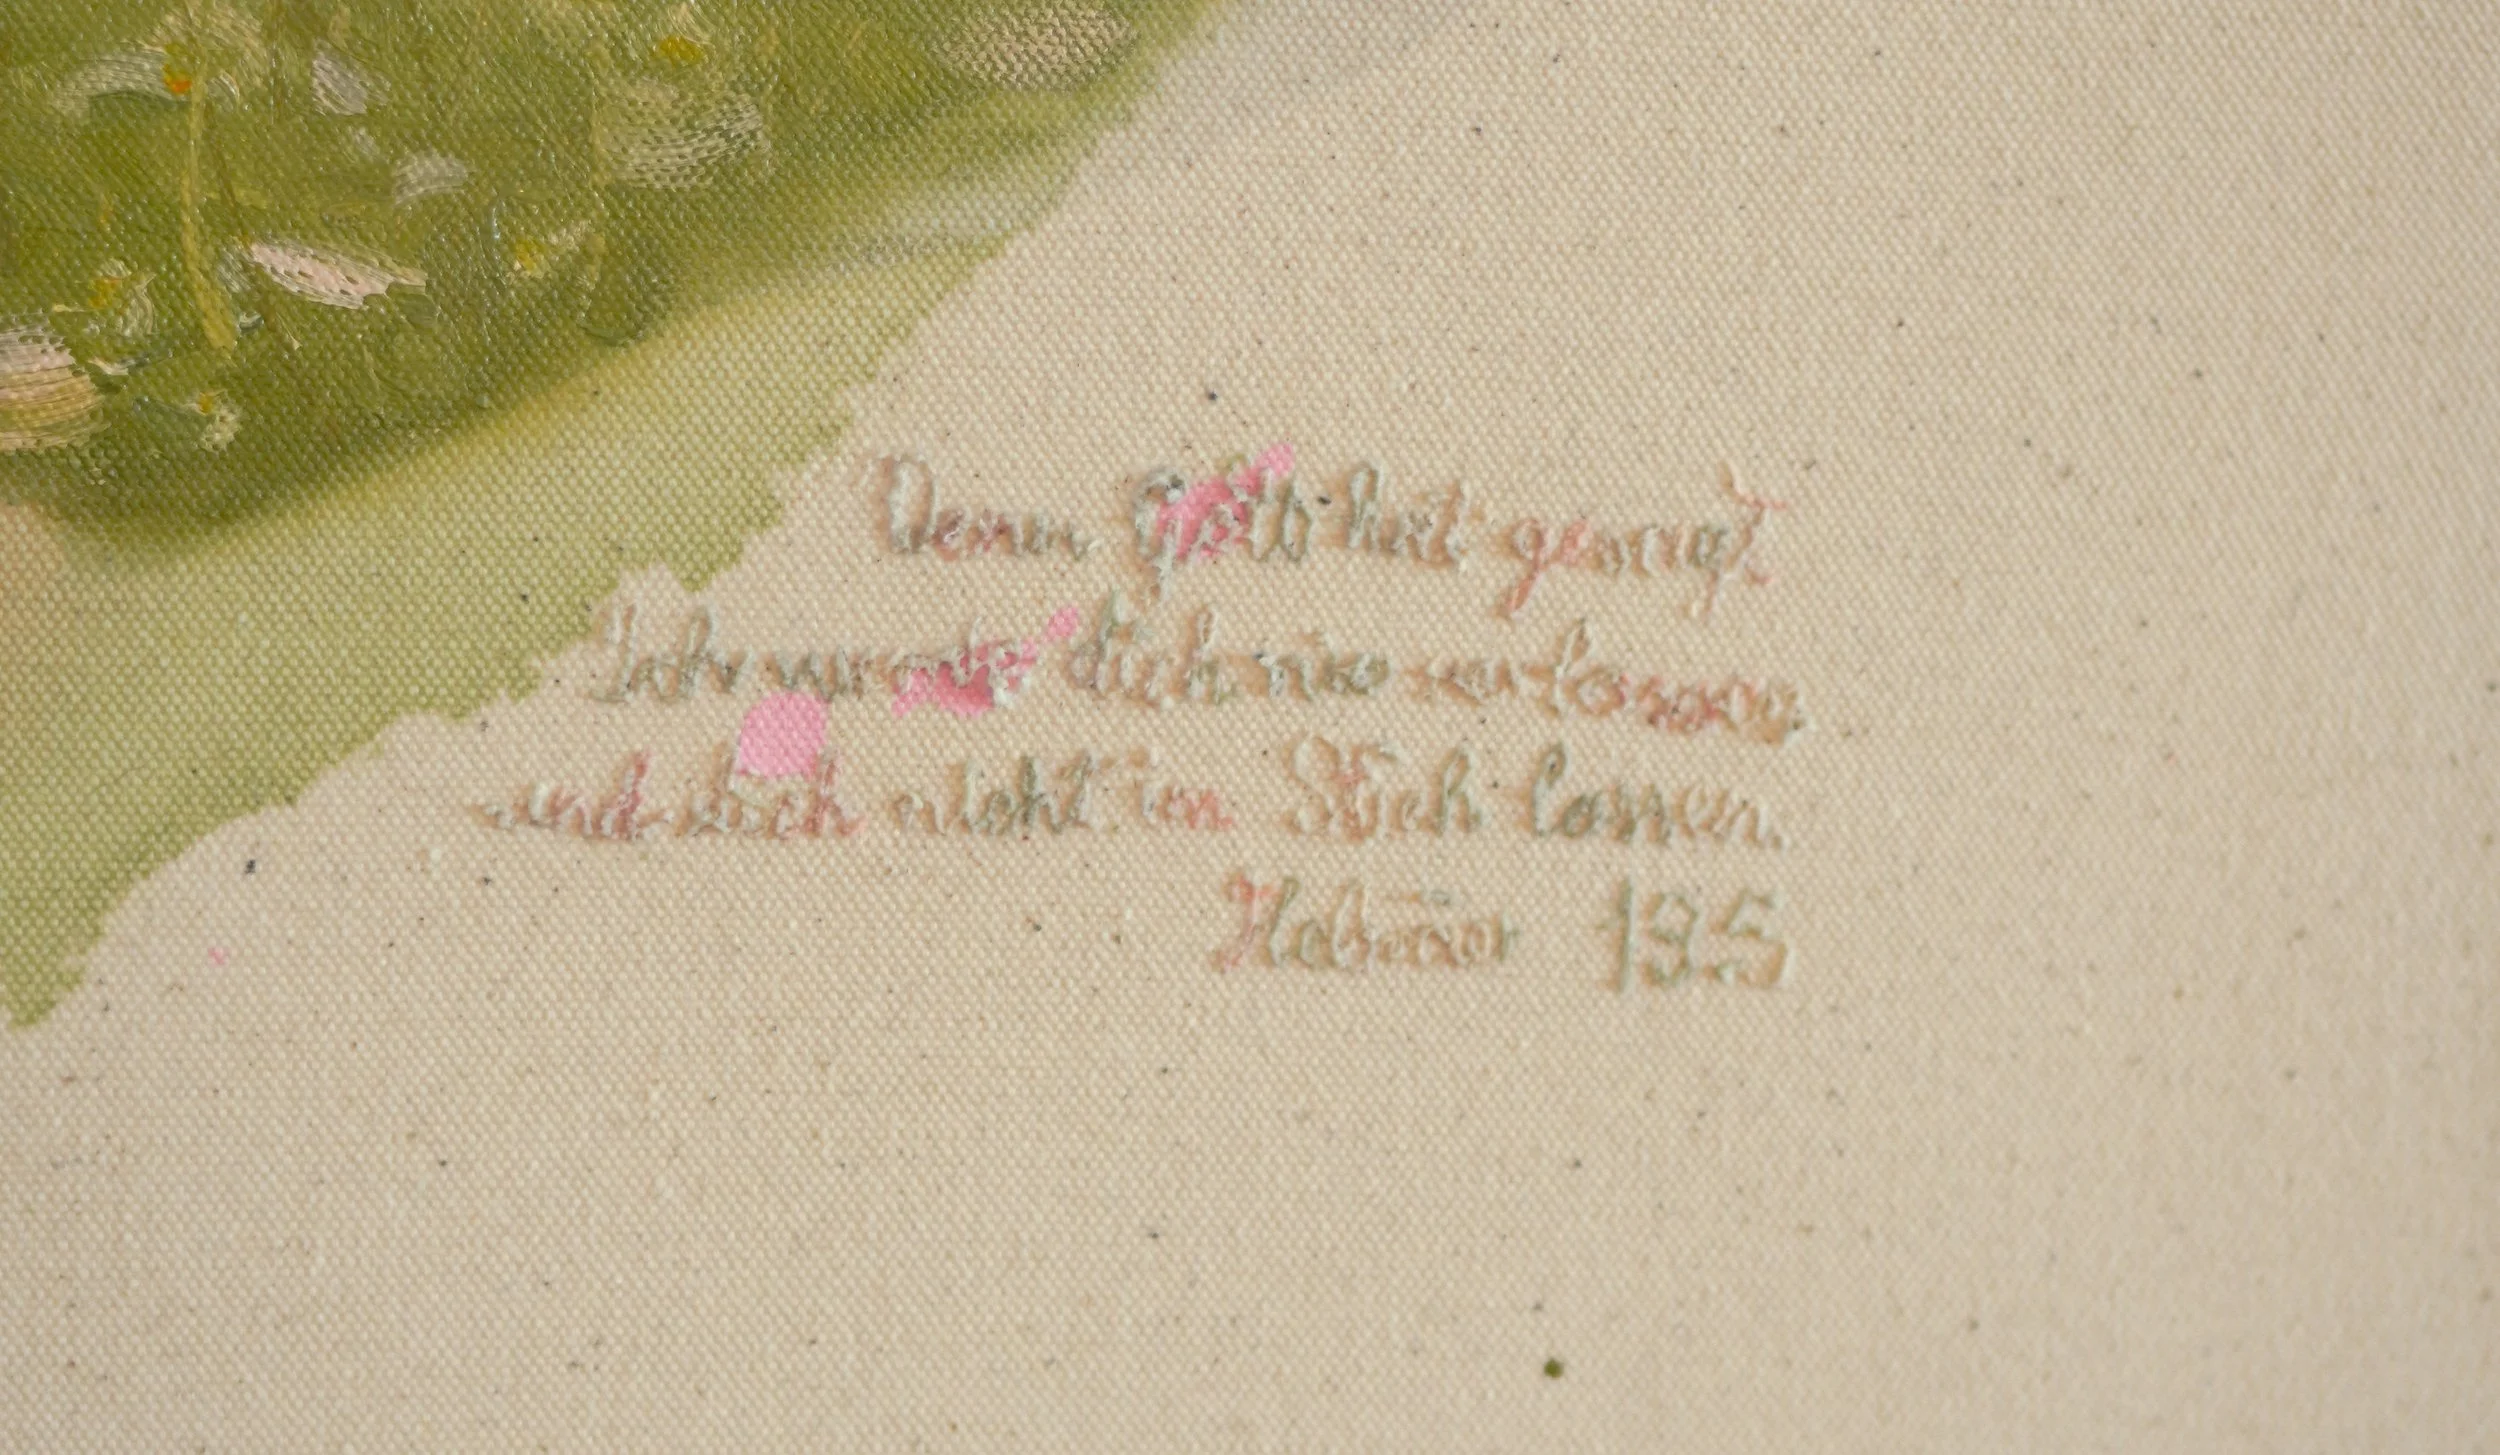 Denn Gott hat gesagt
Ich werde dich nie verlassen
und dich nicht im Stich lassen.
Hebräer 13 5